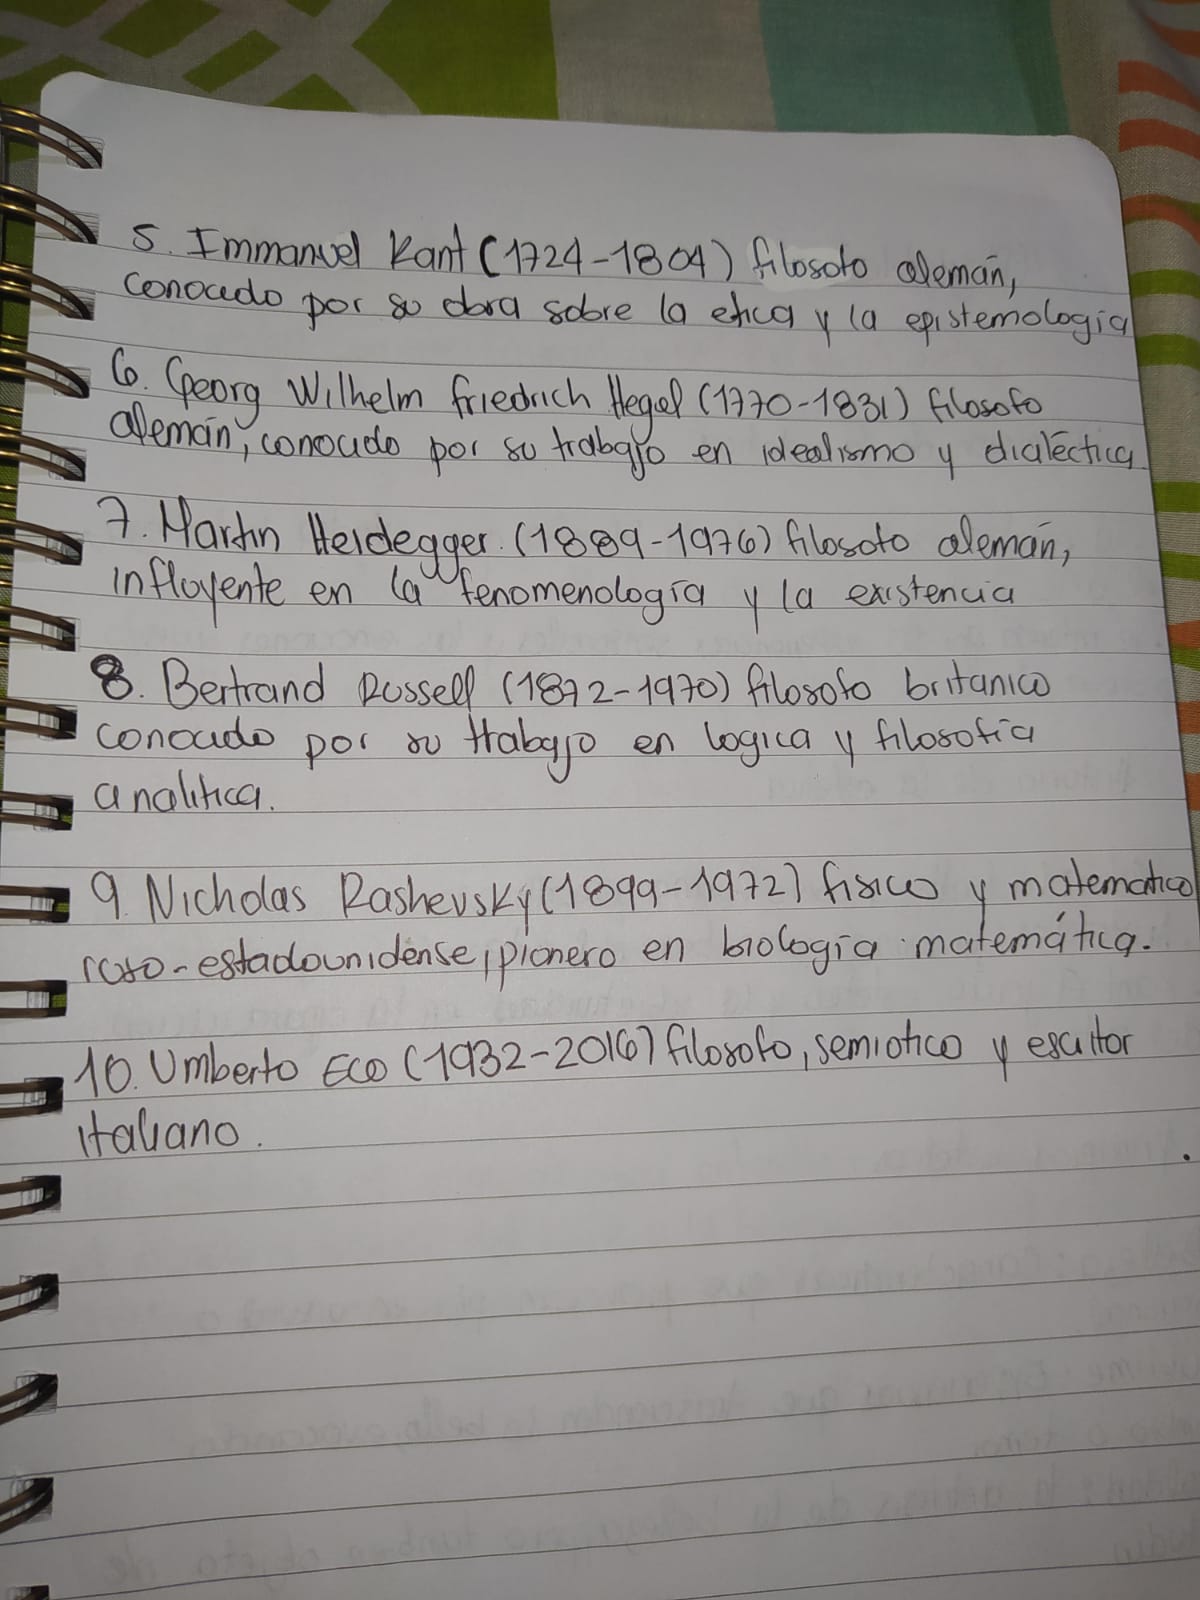 5. Immanuel Kant (1724-1804) filosofo alemán,
conocido por su obra sobre la etica y la epistemología
6. Georg Wilhelm Friedrich Hegel (1770-1831) filosofo
alemán, conocido por su trabajo en idealismo y dialéctica
7. Martin Heidegger. (1889-1976) filosofo alemán,
influyente en la fenomenología y la existencia
8. Bertrand Russell (1872-1970) filosofo britanico
conocido por su trabajo en logica y filosofía
analitica.
9. Nicholas Rashevsky (1899-1972) fisico y matematico
ruso-estadounidense, pionero en biología matemática.
10. Umberto Eco (1932-2016) filosofo, semiotico y escritor
italiano.